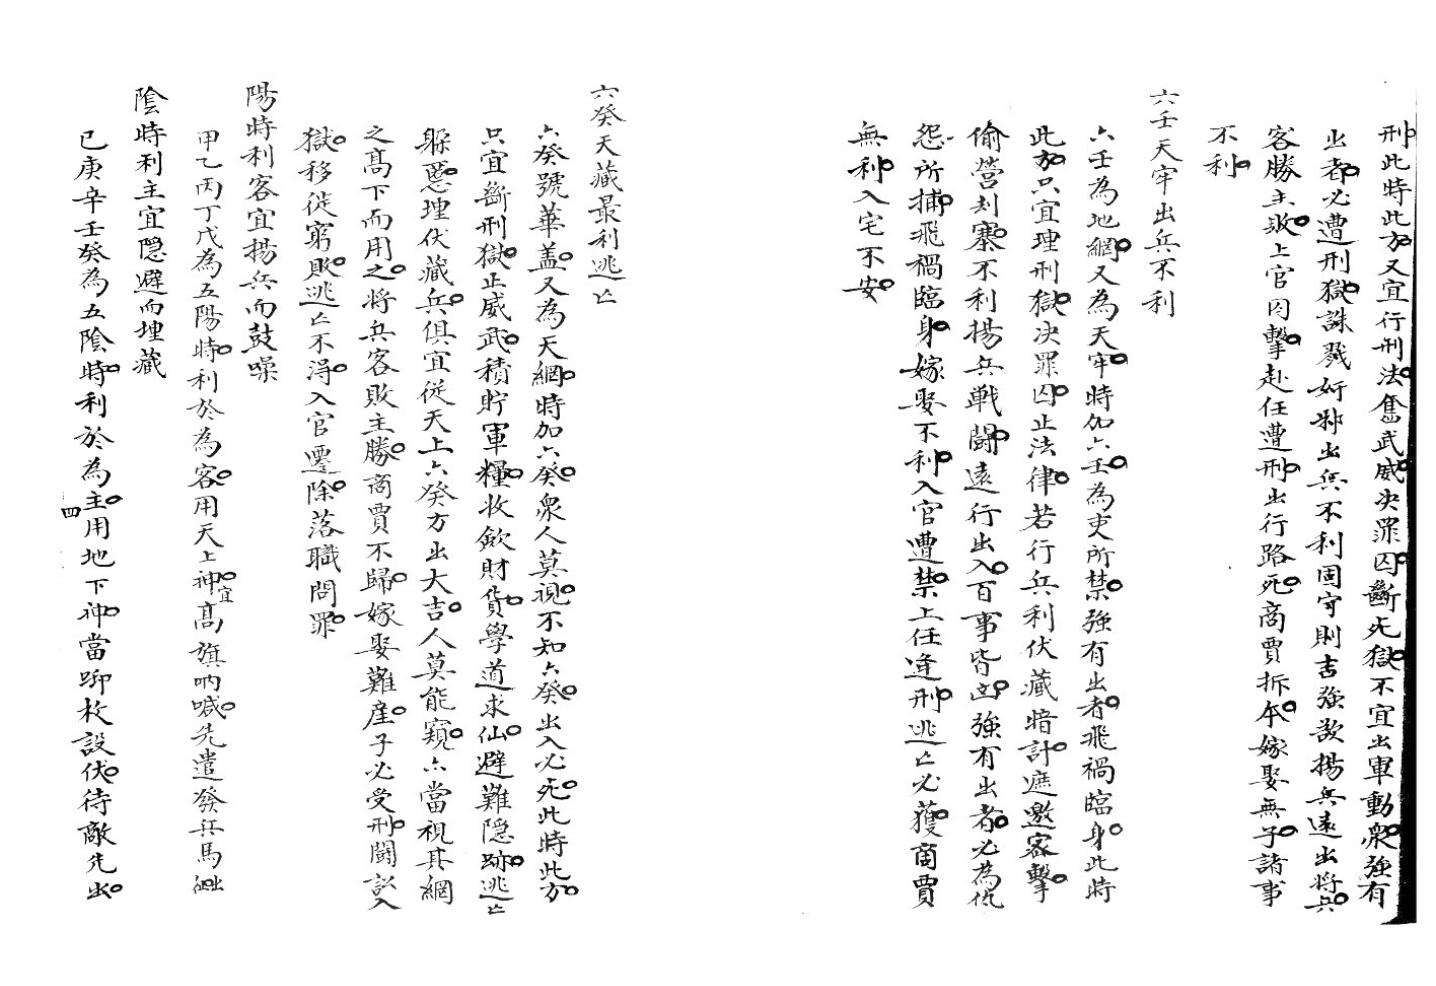 刑此時此方又宜行刑法奮武威决罪囚斷死獄不宜出軍動衆強有
出者必遭刑獄誅戮奸邪出兵不利固守則吉強敵揚兵遠出將兵
客勝主敗上官囚擊赴任遭刑出行路死商賈折本嫁娶無子諸事
不利
六壬天牢出兵不利
六壬為地網又為天牢時加六壬為吏所禁強有出者飛禍臨身此時
此方只宜理刑獄决罪囚止法律若行兵利伏藏暗計遮邀客擊
偷營刦寨不利揚兵戰鬪遠行出入百事皆凶強有出者必為仇
怨所捕飛禍臨身嫁娶不利入官遭禁上任逢刑逃亡必獲商賈
無利入宅不安
六癸天藏最利逃亡
六癸號華盖又為天網時加六癸衆人莫視不知六癸出入必死此時此方
只宜斷刑獄止威武積貯軍糧收歛財貨學道求仙避難隱跡逃亡
躱慝埋伏藏兵俱宜従天上六癸方出大吉人莫能窺六當視其網
之高下而用之將兵客敗主勝商賈不歸嫁娶難産子必受刑鬪訟入
獄移徙窮敗逃亡不得入官遷除落職問罪
陽時利客宜揚兵而鼓噪
甲乙丙丁戊為五陽時利於為客用天上神宜高旗吶喊先遣發兵馬出
陰時利主宜隐避而埋藏
已庚辛壬癸為五陰時利於為主用地下神當啣枚設伏待敵先出
四